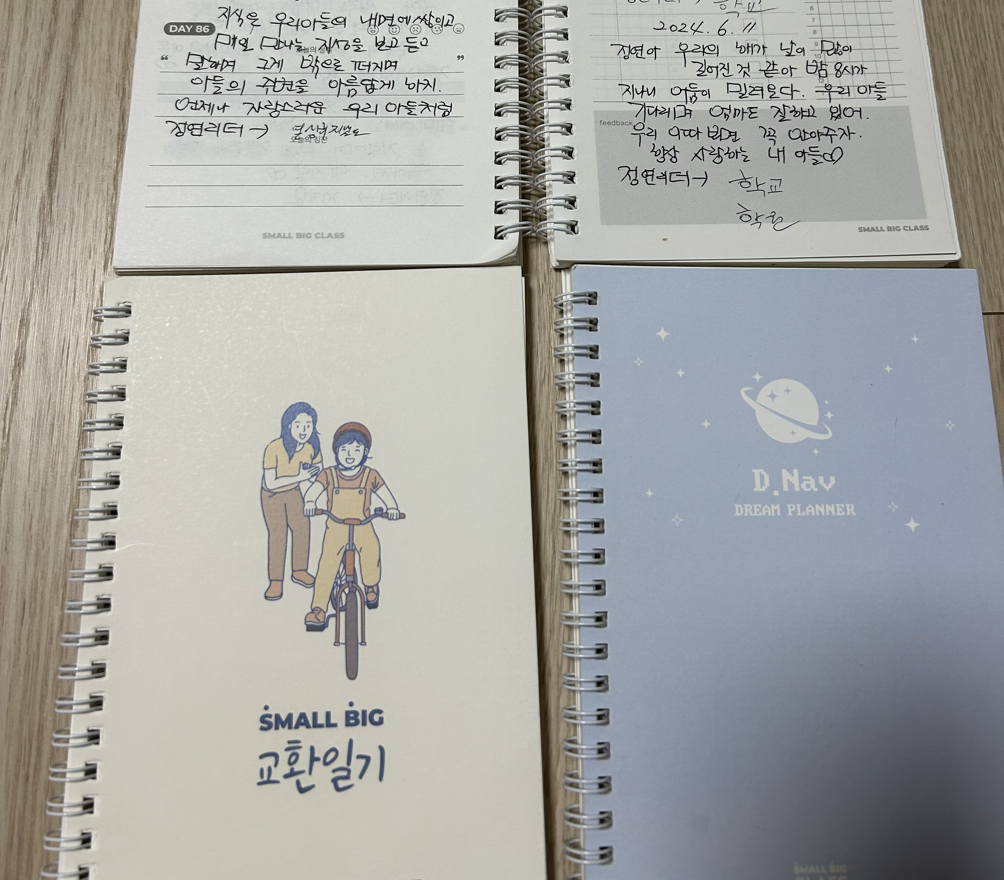 지식은 우리아들의 내면에 쌓이고
DAY 86
매일 만나는 지성을 보고 듣고
"말하며 그게 밖으로 퍼지며"
아들의 주변을 아름답게 하지.
언제나 자랑스러운 우리 아들처럼
정연리더→
오늘의 칭찬
SMALL BIG CLASS
학교
2024. 6. 11
정연아 우리의 해가 날이 많이
길어진 것 같아 밤 8시가
지나니 어둠이 밀려온다. 우리 아들
기다리고 엄마도 잘하고 있어.
feedback
우리 이따 보면 꼭 안아주자.
항상 사랑하는 내 아들♡
정연리더→ 학교
학원
SMALL BIG CLASS
SMALL BIG
교환일기
D.Nav
DREAM PLANNER
SMALL BIG
CLASS